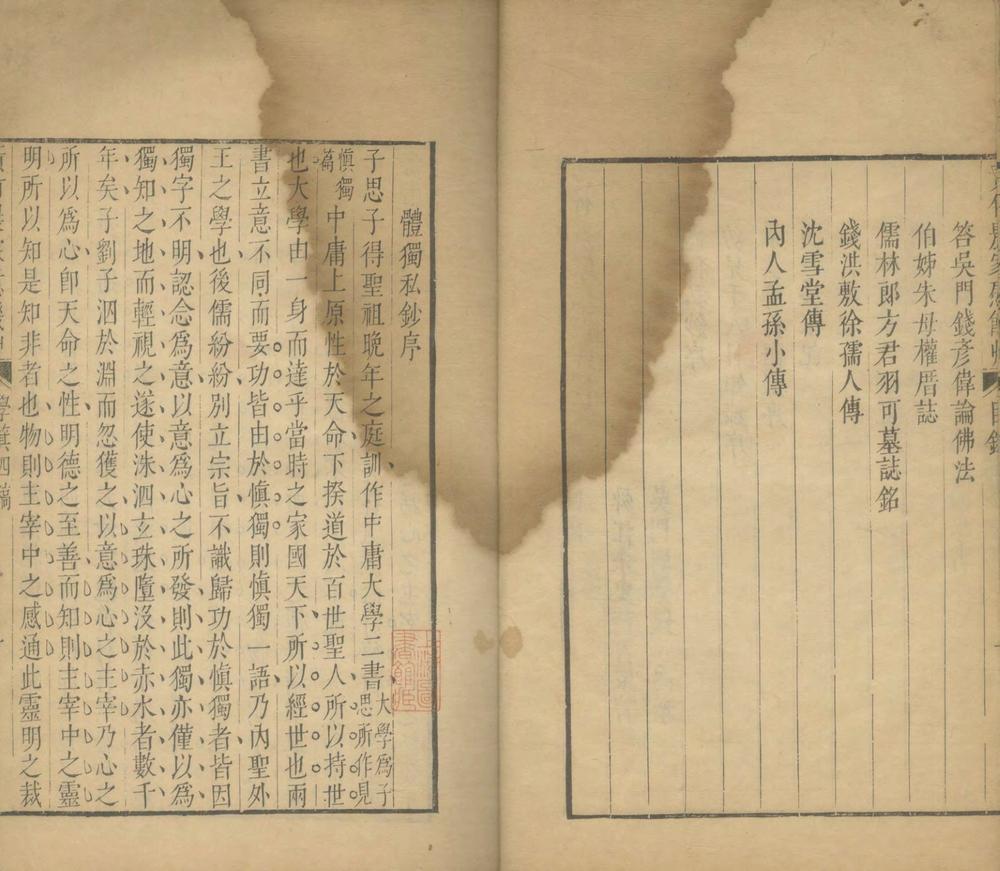 答吳門錢彥偉論佛法
伯姊朱母權厝誌
儒林郎方君羽可墓誌銘
錢洪敷徐孺人傳
沈雪堂傳
內人孟孫小傳
體獨私鈔序
子思子得聖祖晚年之庭訓作中庸大學二書大學爲子思所作見
慎獨篇中庸上原性於天命下揆道於百世聖人所以持世
也大學由一身而達乎當時之家國天下所以經世也兩
書立意不同而要功皆由於慎獨則慎獨一語乃內聖外
王之學也後儒紛紛別立宗旨不識歸功於慎獨者皆因
獨字不明認念爲意以意爲心之所發則此獨亦僅以爲
獨知之地而輕視之遂使洙泗玄珠墮沒於赤水者數千
年矣子劉子泗於淵而忽獲之以意爲心之主宰乃心之
所以爲心卽天命之性明德之至善而知則主宰中之靈
明所以知是知非者也物則主宰中之感通此靈明之裁
學箕四稿
上海圖書館藏